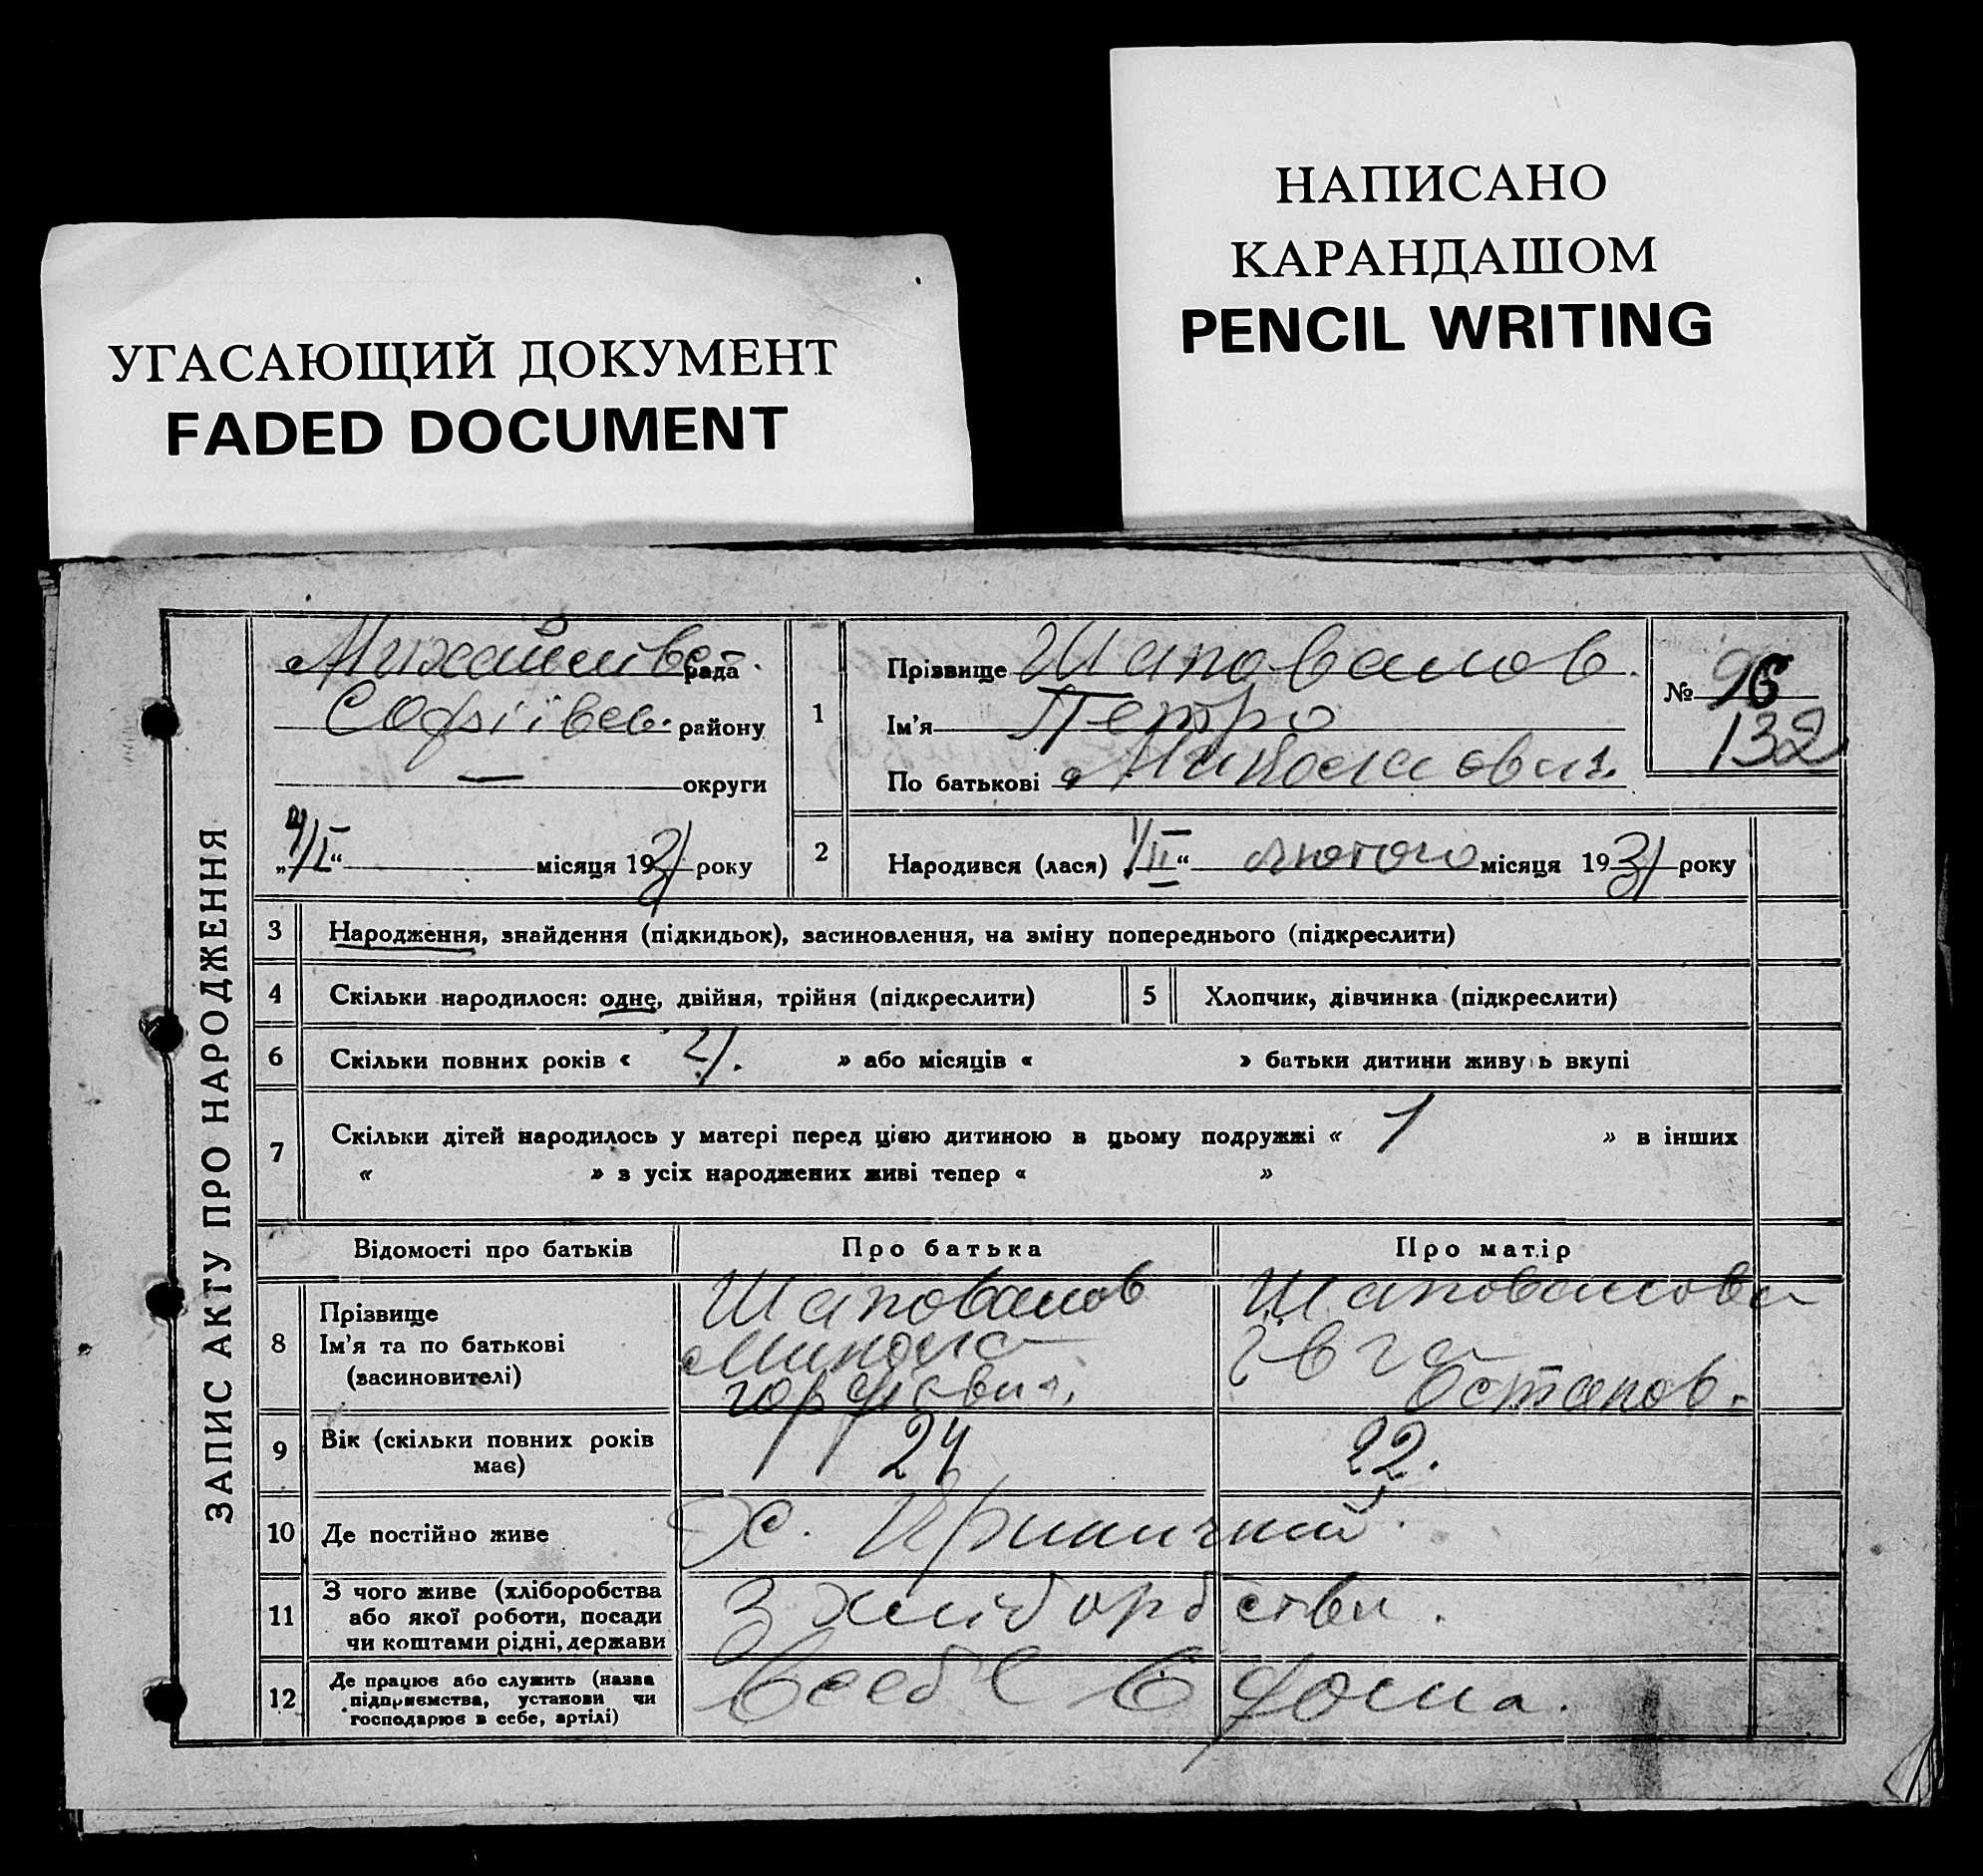 НАПИСАНО
КАРАНДАШОМ
PENCIL WRITING
УГАСАЮЩИЙ ДОКУМЕНТ
FADED DOCUMENT
ЗАПИС АКТУ ПРО НАРОДЖЕННЯ
рада
Софіївськ. району
— округи
місяця 1931 року
1
Прізвище Шаповалов.
Ім'я Петро
По батькові Миколаович.
№ 96
132
2 Народився (лася) „1/II“ лютого місяця 1931 року
3 Народження, знайдення (підкидьок), засиновлення, на зміну попереднього (підкреслити)
4 Скільки народилося: одне, двійня, трійня (підкреслити) 5 Хлопчик, дівчинка (підкреслити)
6 Скільки повних років « » або місяців « » батьки дитини живу ь вкупі
7 Скільки дітей народилось у матері перед цією дитиною в цьому подружжі « 1 » в інших
« » з усіх народжених живі тепер « »
Відомості про батьків Про батька Про матір
8 Прізвище
Ім'я та по батькові
(засиновителі)
Шаповалов
Микола
Шаповалова
Остапов.
9 Вік (скільки повних років
має)
24 22.
10 Де постійно живе с. Криничний.
11 З чого живе (хліборобства
або якої роботи, посади
чи коштами рідні, держави
З хліборобства.
12 Де працює або служить (назва
підприємства, установи чи
господарює в себе, артілі)
в себе вдома.